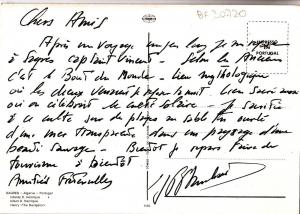 Chers Amis
BF 20720
PORTUGAL
Après un voyage un peu long je me trouve
à Sagres captant l'univers - Selon les Anciens
c'est le Bout du Monde - lieu mythologique
où les dieux venaient se reposer la nuit - lieu sacré aussi
où on célébrait le culte solaire - Je
à ce culte sur des plages au sable fin ourlé
d'une mer transparente dans un paysage d'une
beauté sauvage - Bientôt je repars faire du
tourisme à bientôt
Amitiés
SAGRES - Algarve - Portugal
Infante D. Henrique
Henry «The Navigator»